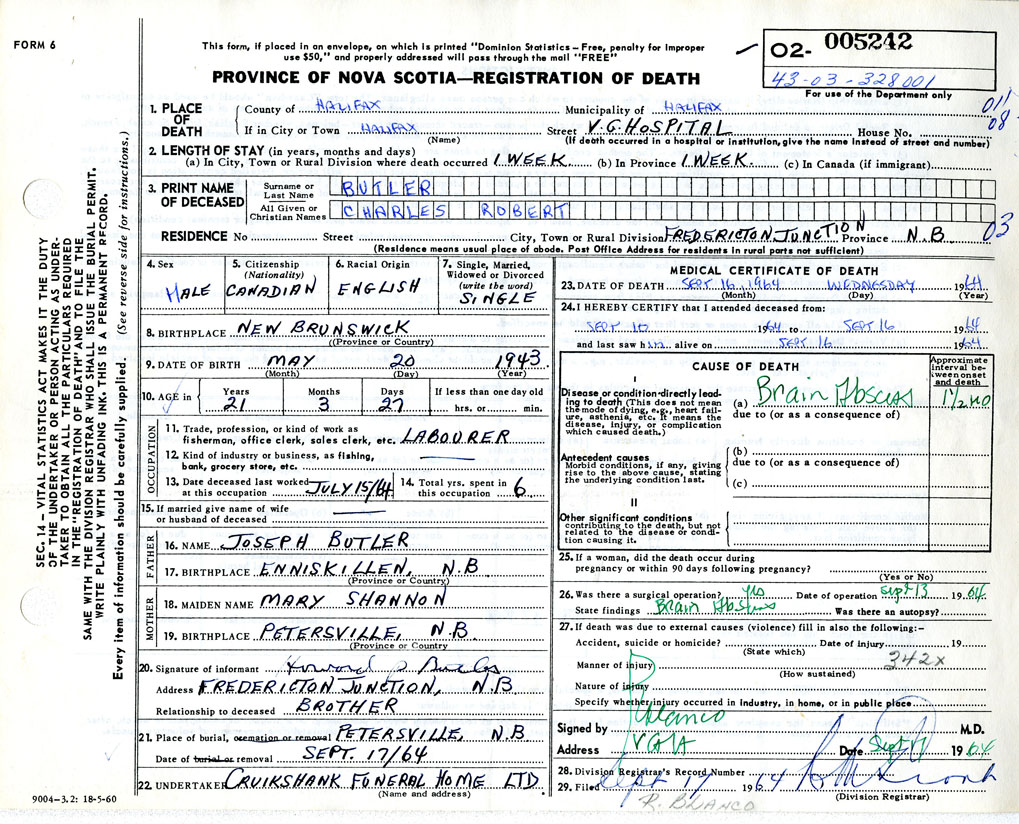 FORM 6
This form, if placed in an envelope, on which is printed "Dominion Statistics – Free, penalty for improper
use $50," and properly addressed will pass through the mail "FREE"
PROVINCE OF NOVA SCOTIA—REGISTRATION OF DEATH
02- 005242
43-03-328001
For use of the Department only
011
08
1. PLACE OF DEATH
County of HALIFAX Municipality of HALIFAX
If in City or Town HALIFAX Street V.G. HOSPITAL House No.
(Name) (If death occurred in a hospital or institution, give the name instead of street and number)
2. LENGTH OF STAY (in years, months and days)
(a) In City, Town or Rural Division where death occurred 1 WEEK (b) In Province 1 WEEK (c) In Canada (if immigrant)
3. PRINT NAME OF DECEASED
Surname or Last Name BUTLER
All Given or Christian Names CHARLES ROBERT
RESIDENCE No Street City, Town or Rural Division FREDERICTON JUNCTION Province N.B. 03
(Residence means usual place of abode. Post Office Address for residents in rural parts not sufficient)
4. Sex MALE
5. Citizenship (Nationality) CANADIAN
6. Racial Origin ENGLISH
7. Single, Married, Widowed or Divorced (write the word) SINGLE
8. BIRTHPLACE NEW BRUNSWICK
(Province or Country)
9. DATE OF BIRTH MAY 20 1943
(Month) (Day) (Year)
10. AGE in Years 21 Months 3 Days 27 If less than one day old hrs. or min.
OCCUPATION
11. Trade, profession, or kind of work as
fisherman, office clerk, sales clerk, etc. LABOURER
12. Kind of industry or business, as fishing,
bank, grocery store, etc.
13. Date deceased last worked at this occupation JULY 15/64
14. Total yrs. spent in this occupation 6
15. If married give name of wife
or husband of deceased
FATHER
16. NAME JOSEPH BUTLER
17. BIRTHPLACE ENNISKILLEN, N.B
(Province or Country)
MOTHER
18. MAIDEN NAME MARY SHANNON
19. BIRTHPLACE PETERSVILLE, N.B
(Province or Country
20. Signature of informant
Address FREDERICTON JUNCTION, N.B
Relationship to deceased BROTHER
21. Place of burial, cremation or removal PETERSVILLE, N.B
Date of burial or removal SEPT. 17/64
22. UNDERTAKER CRUIKSHANK FUNERAL HOME LTD
(Name and address)
MEDICAL CERTIFICATE OF DEATH
23. DATE OF DEATH SEPT 16, 1964 WEDNESDAY 1964
(Month) (Day) (Year)
24. I HEREBY CERTIFY that I attended deceased from:
SEPT 10 1964 to SEPT 16 1964
and last saw him alive on SEPT 16 1964
CAUSE OF DEATH
Approximate interval between onset and death
I
Disease or condition directly leading to death (This does not mean
the mode of dying, e.g., heart failure, asthenia, etc. It means the
disease, injury, or complication
which caused death.)
(a) Brain Abscess 1 1/2 MO
due to (or as a consequence of)
Antecedent causes
Morbid conditions, if any, giving
rise to the above cause, stating
the underlying condition last.
(b)
due to (or as a consequence of)
(c)
II
Other significant conditions
contributing to the death, but not
related to the disease or condition causing it.
25. If a woman, did the death occur during
pregnancy or within 90 days following pregnancy?
(Yes or No)
26. Was there a surgical operation? yes Date of operation Sept 13 1964
State findings Brain Abscess Was there an autopsy?
27. If death was due to external causes (violence) fill in also the following:–
Accident, suicide or homicide? Date of injury 19
(State which)
342x
Manner of injury
(How sustained)
Nature of injury
Specify whether injury occurred in industry, in home, or in public place
Signed by R Blanco M.D.
Address VGH Date Sept 17 1964
28. Division Registrar's Record Number
29. Filed Sept 17 1964
(Division Registrar)
R. BLANCO
SEC. 14 – VITAL STATISTICS ACT MAKES IT THE DUTY
OF THE UNDERTAKER OR PERSON ACTING AS UNDER-
TAKER TO OBTAIN ALL THE PARTICULARS REQUIRED
IN THE "REGISTRATION OF DEATH" AND TO FILE THE
SAME WITH THE DIVISION REGISTRAR WHO SHALL ISSUE THE BURIAL PERMIT.
WRITE PLAINLY WITH UNFADING INK. THIS IS A PERMANENT RECORD.
Every item of information should be carefully supplied. (See reverse side for instructions.)
9004–3.2: 18-5-60